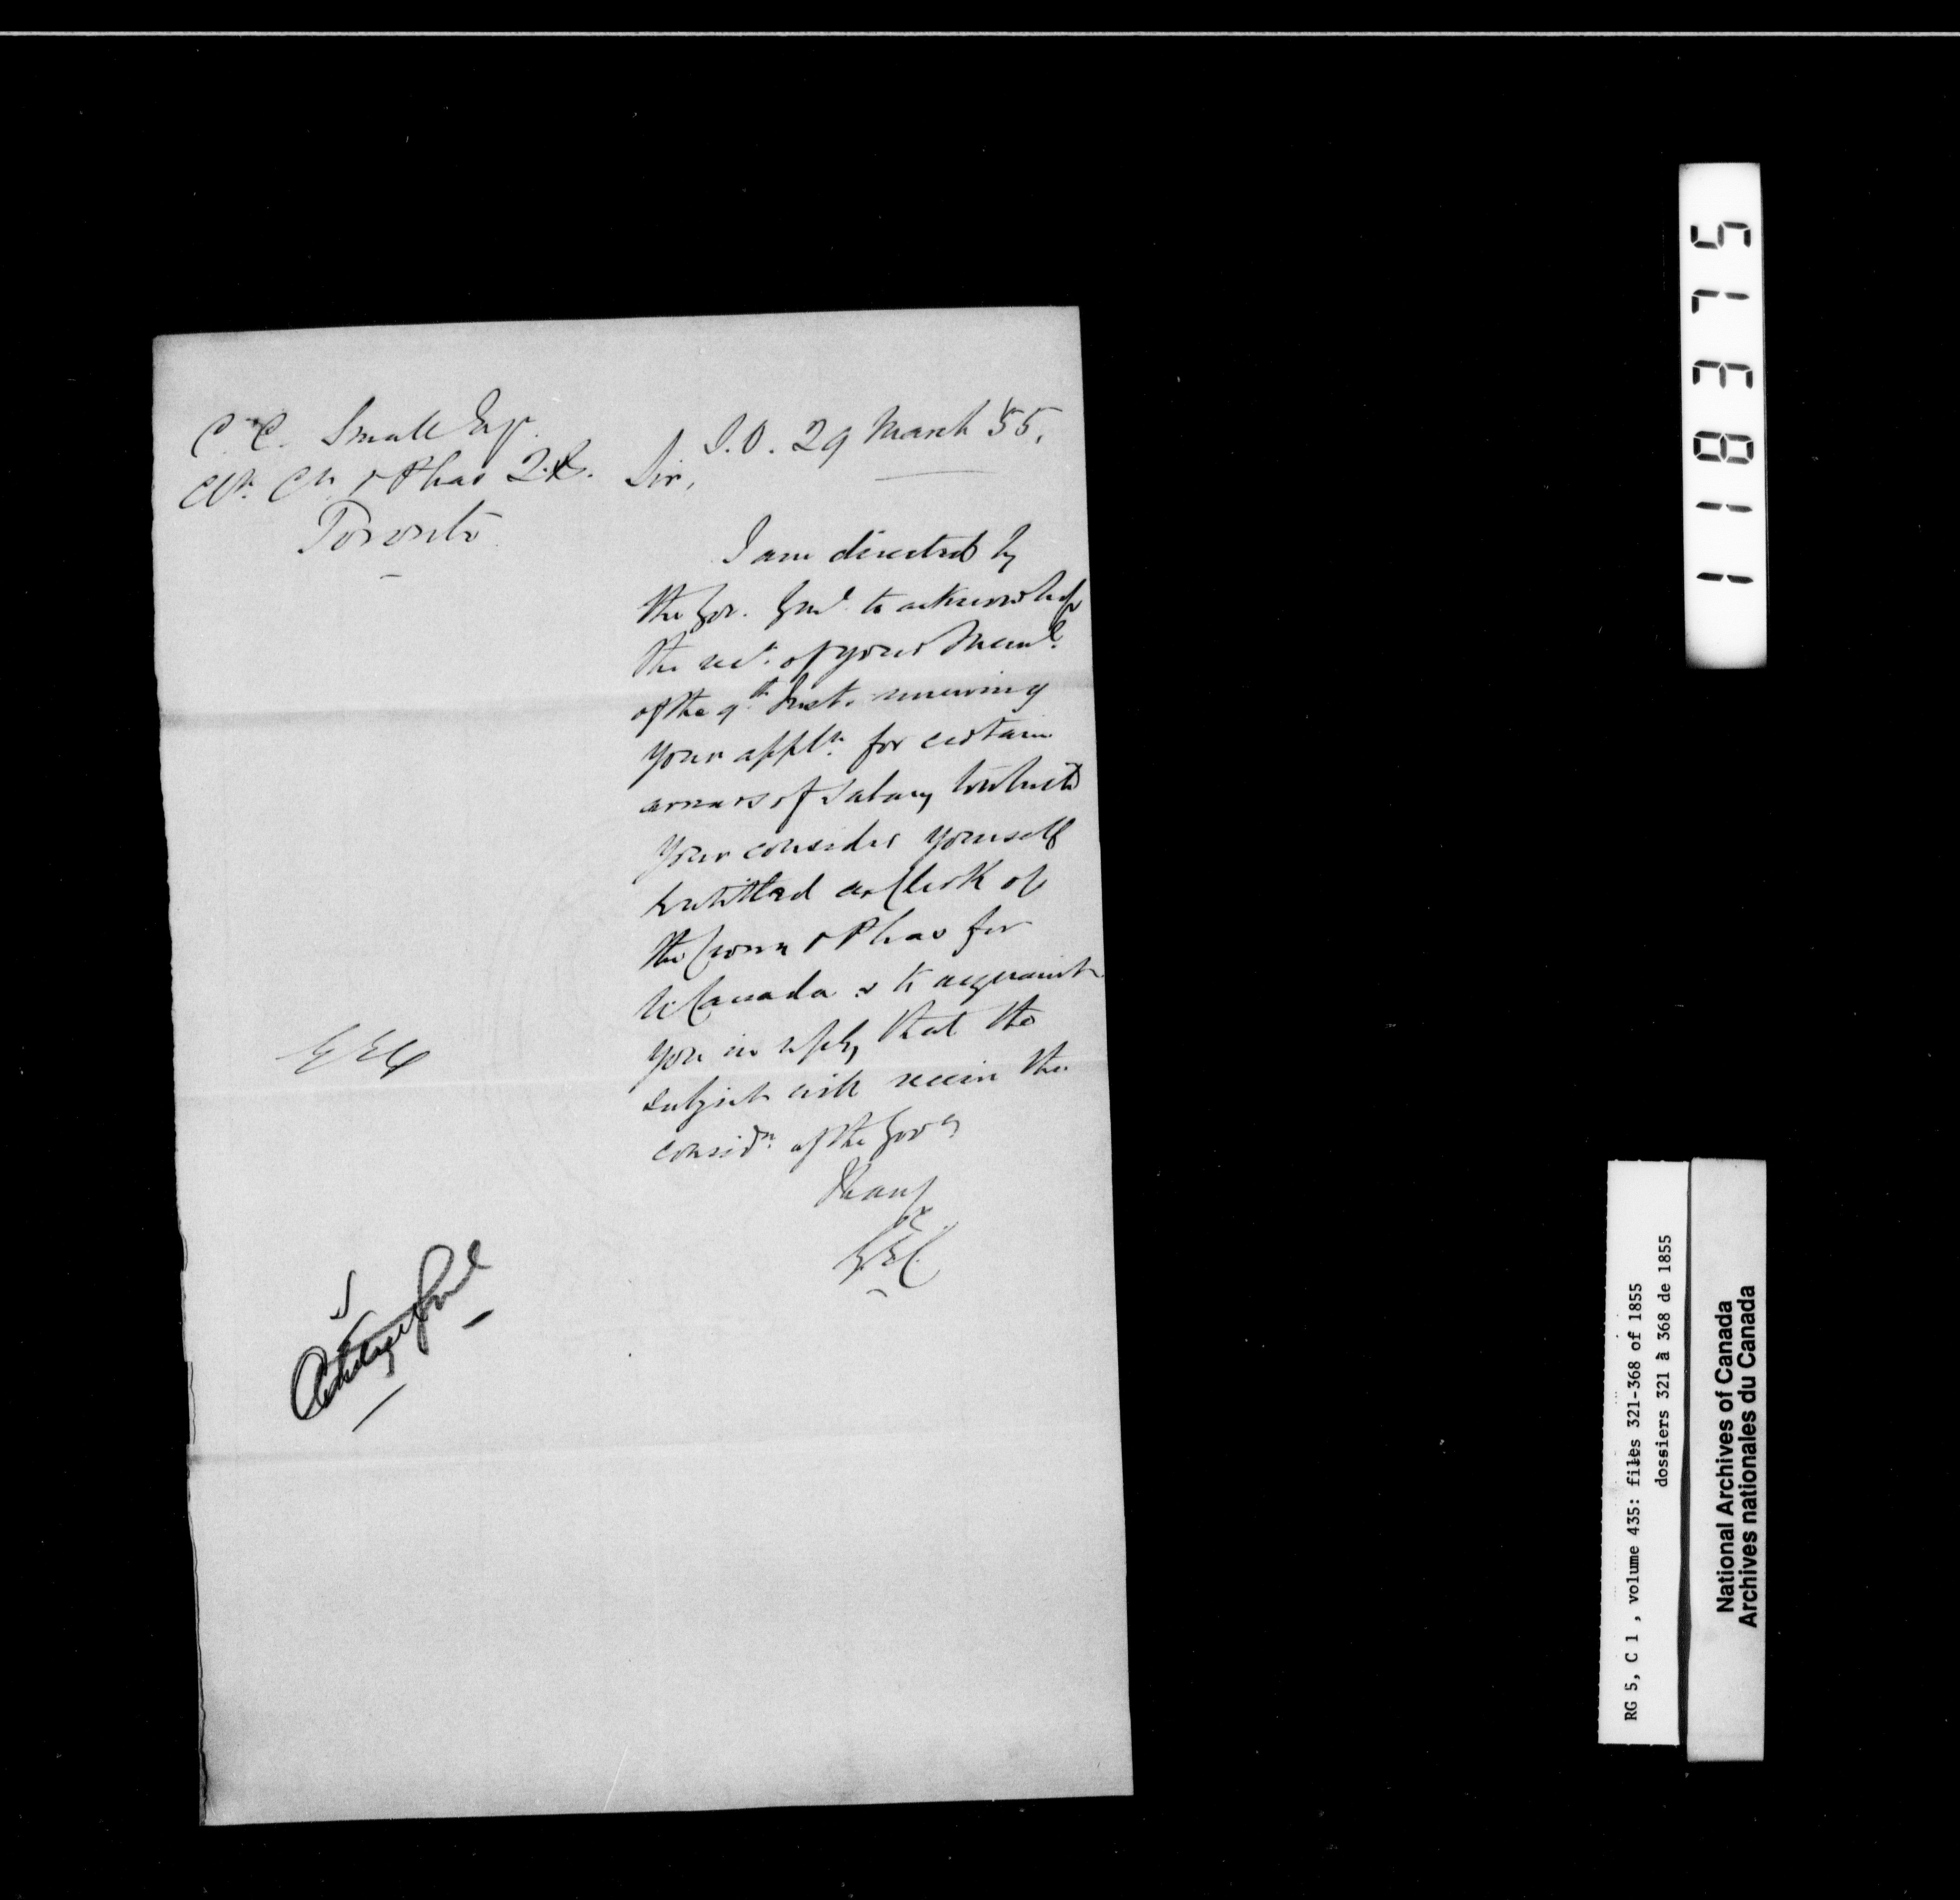 C. C. Small Esqr.
Clk. Cn. & Pleas Q.B.
Toronto
S.O. 29 March 55.
Sir,
I am directed by
the Gov. Genl. to acknowledge
the rect. of your Meml.
of the 9th Inst. renewing
your appln. for certain
arrears of salary to which
you consider yourself
entitled as Clerk of
the Crown & Pleas for
U. Canada & to acquaint
you in reply, that the
subject will receive the
considn. of the Govt
I have
&c.
G.E.C.
11 8375
RG 5, C 1 , volume 435: files 321-368 of 1855
dossiers 321 à 368 de 1855
National Archives of Canada
Archives nationales du Canada